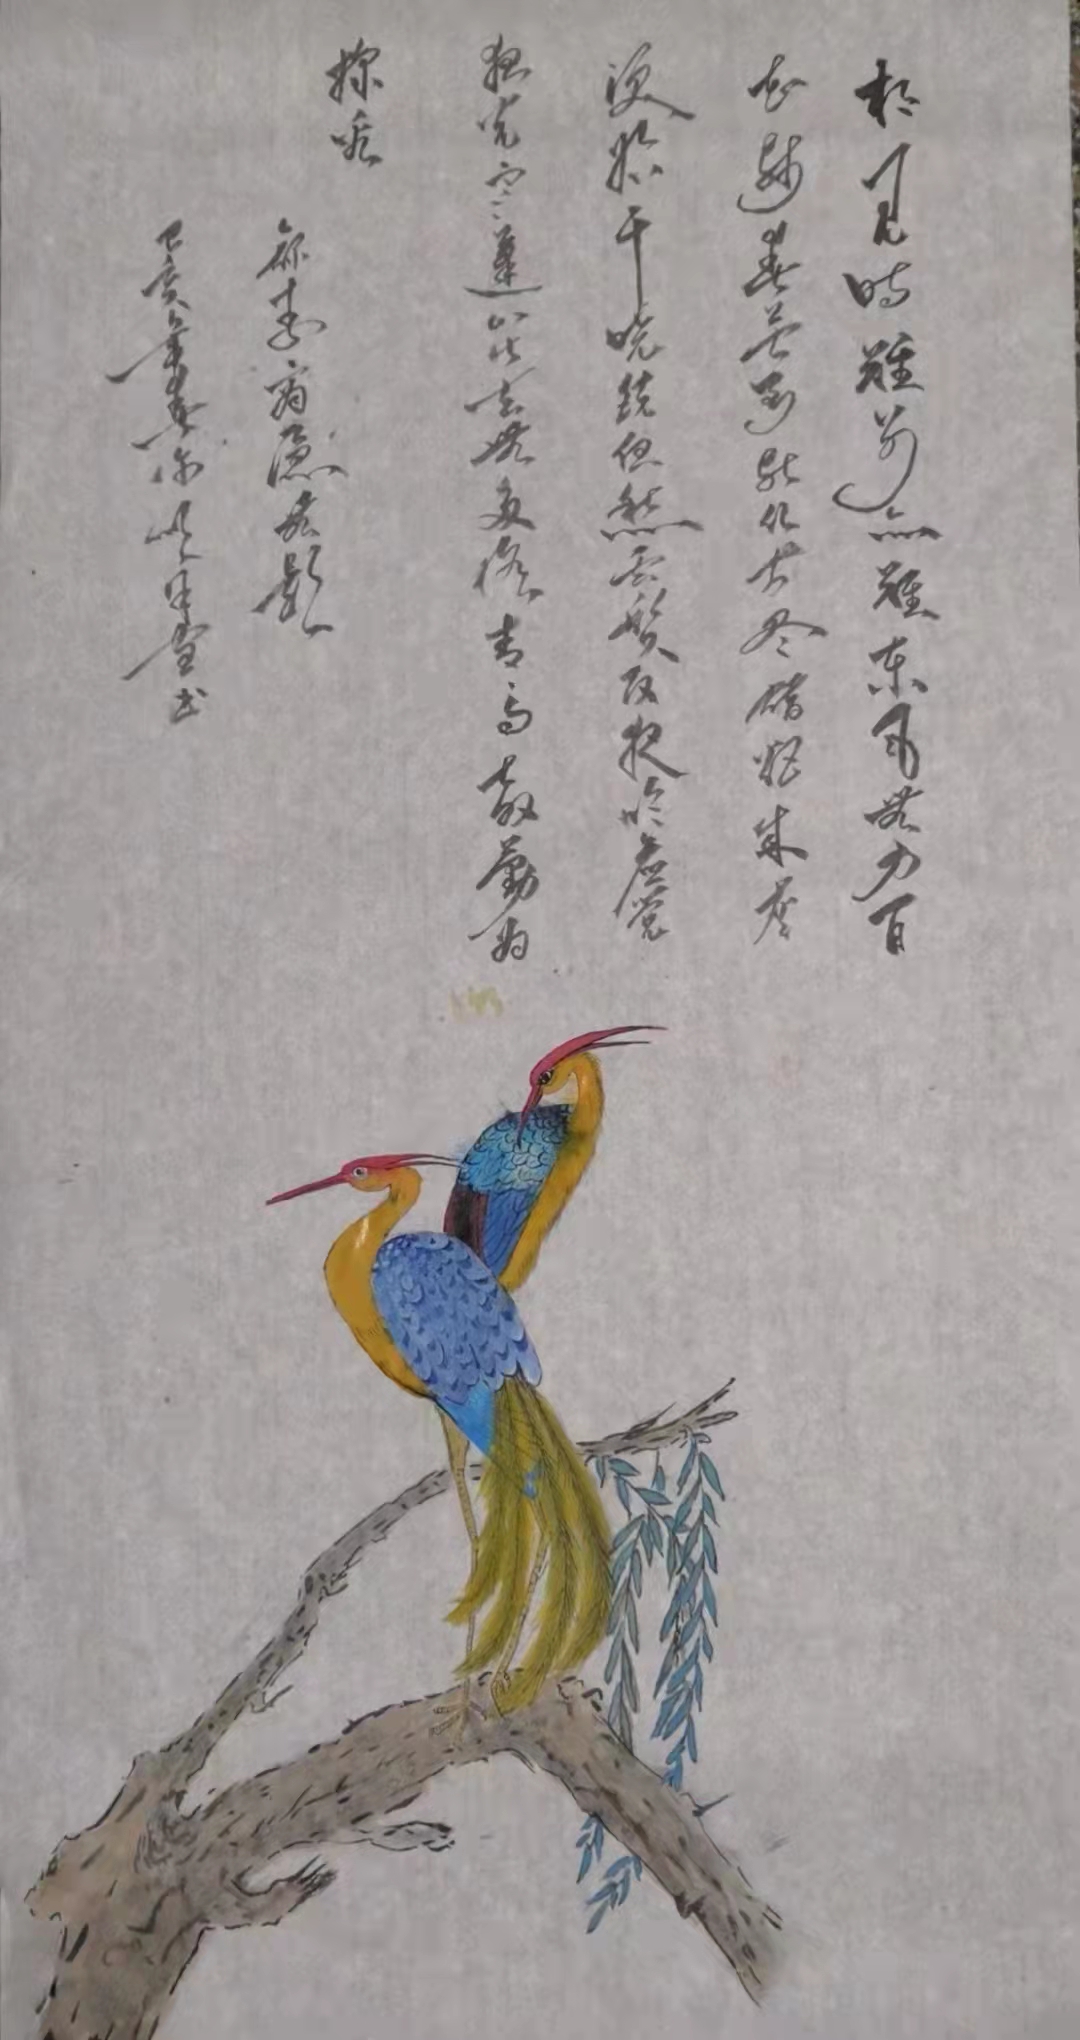 相见时難别亦難东风无力百
花残春蚕到死丝方尽蜡炬成灰
泪始干晓镜但愁云鬓改夜吟应觉
光寒蓬山此去无多路青鸟殷勤为
探看
录李商隐无题
己亥年春月堂书